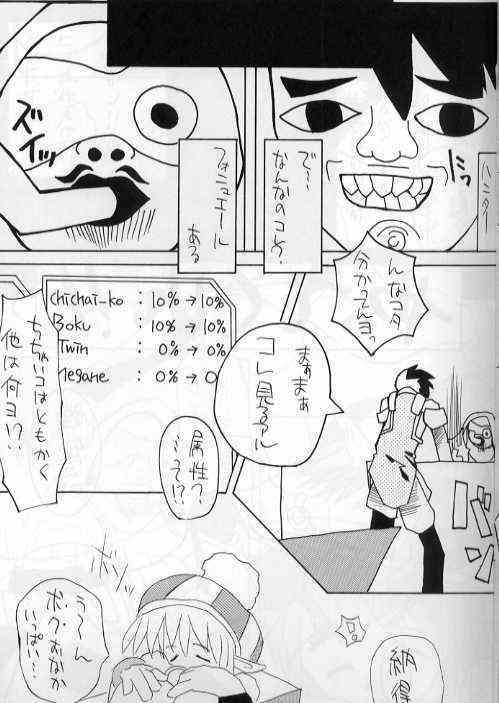 ハンター
ニっ
で…
なんなのコレ?
フォニュエール
ある
ズイッ
んなコタ
分かってんヨっ
まぁまぁ
コレ見るアル
バン
chichai-ko : 10% → 10%
Boku : 10% → 10%
Twin : 0% → 0%
Megane : 0% → 0
属性?
…って!?
ちっちゃいコはともかく
他は何ヨ!?
納得
う〜ん
ボクおなか
いっぱい…
ポリ